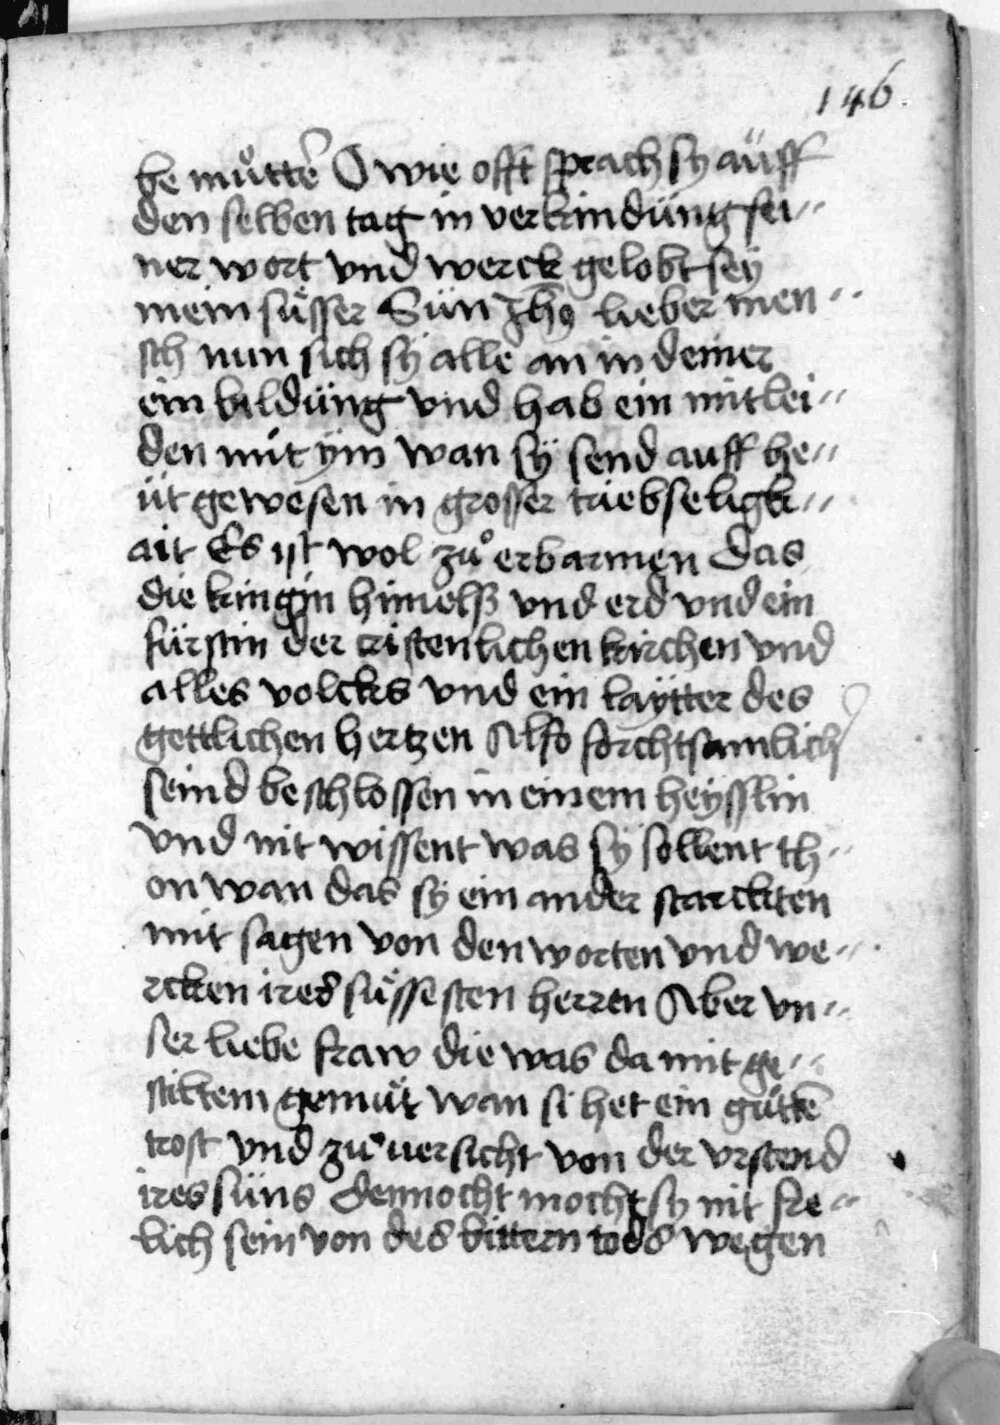 146.
be muͦtter O wie offt sprach sy aüff
den selben tag in verkindüng sei〃
ner wort vnd werck gelobt sey
mein suͤsser Sün Jhs lieber men〃
sch nun sich sy alle an in deiner
ein bildüng vnd hab ein mitlei〃
den mit ÿm wan sÿ send auff he〃
üt gewesen in grosser triebseligk〃
ait Es ist wol zuͦ erbarmen Das
die kingin himelß vnd erd vnd ein
fürstin der cristenlichen kirchen vnd
alles volcks vnd ein laÿtter des
gettlichen hertzen Also forchtsamlich
seind beschlossen in einem heÿsslin
vnd nit wissent was sÿ sollent th〃
on wan das sÿ ein ander starckten
mit sagen von den worten vnd we〃
rcken ires suͤssesten herren Aber vn〃
ser liebe fraw die was da mit ge〃
stiltem gemuͤt wan si het ein guͦtten
trost vnd zuͦ uersicht von der vrstend
ires süns Dennocht mocht sy nit fre〃
lich sein von des bittern tods wegen